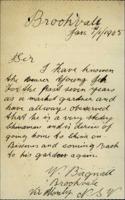 Brookvale
Jan 7/1/1905
Sir
I have known
the bearer Young
for the past seven years
as a market gardener and
have allways observed
that he is a very steady
Chinaman and is desirous of
going home to China on
Business and coming Back
to his gardens again.
W. Bagnall
Brookvale
Via Manly N.S.W